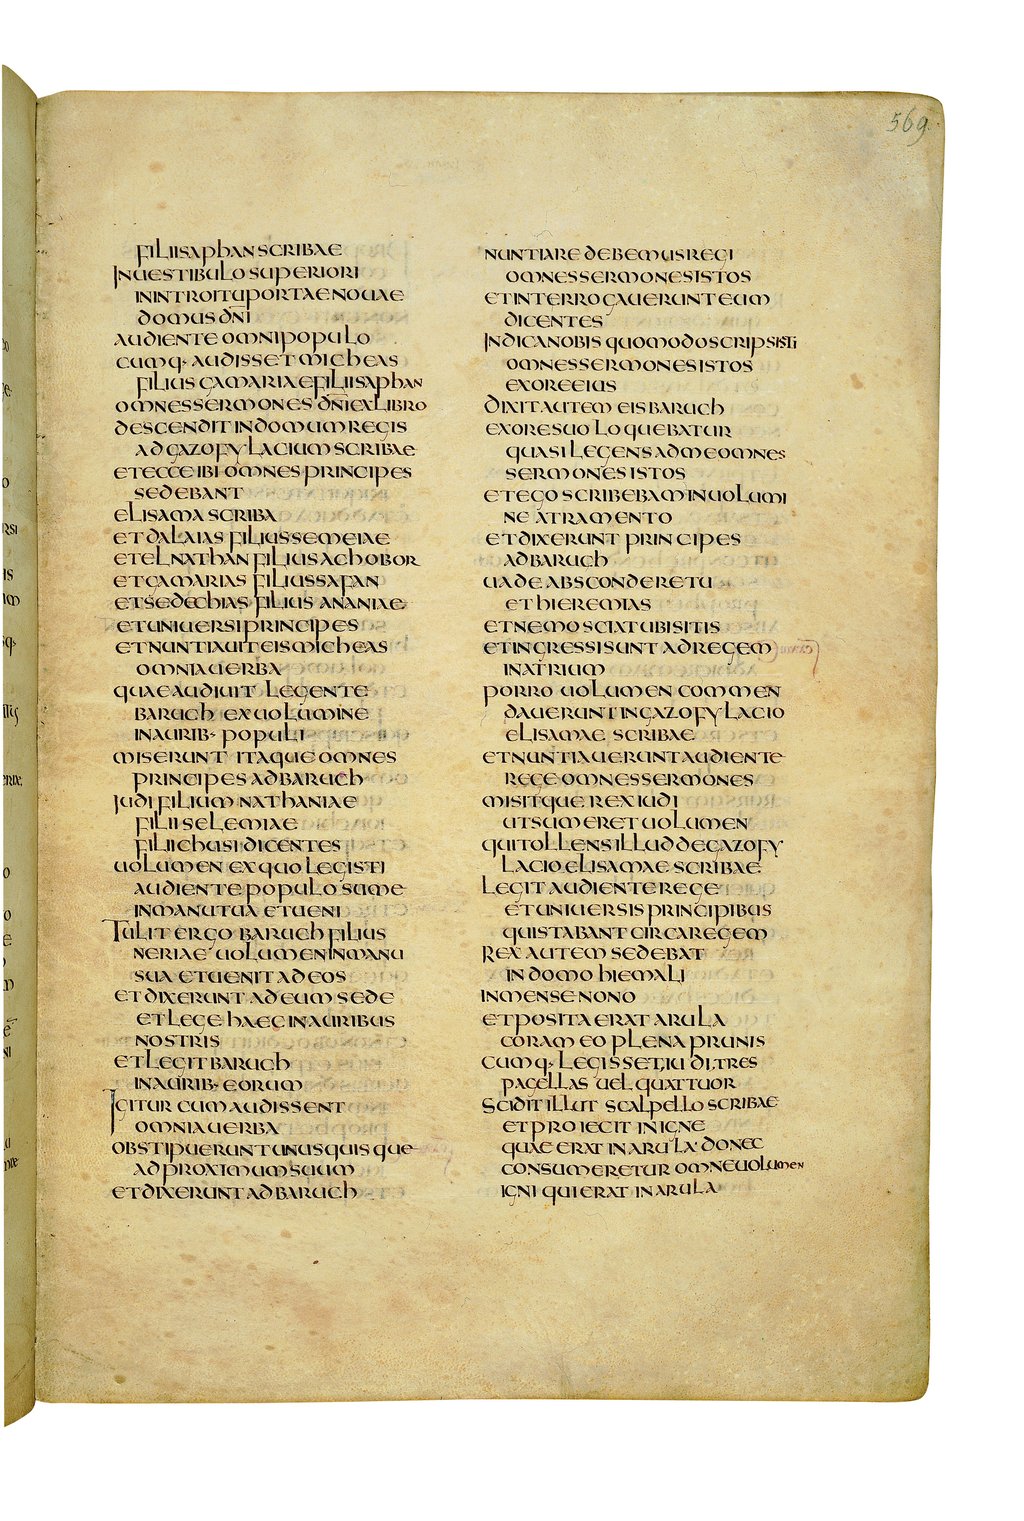 569
FILII SAPHAN SCRIBAE
IN UESTIBULO SUPERIORI
IN INTROITU PORTAE NOUAE
DOMUS DN̄I
AUDIENTE OMNI POPULO
CUMQ· AUDISSET MICHEAS
FILIUS GAMARIAE FILII SAPHAN
OMNES SERMONES DN̄I EX LIBRO
DESCENDIT IN DOMUM REGIS
AD GAZOFYLACIUM SCRIBAE
ET ECCE IBI OMNES PRINCIPES
SEDEBANT
ELISAMA SCRIBA
ET DALAIAS FILIUS SEMEIAE
ET ELNATHAN FILIUS ACHOBOR
ET GAMARIAS FILIUS SAFAN
ET SEDECHIAS FILIUS ANANIAE
ET UNIUERSI PRINCIPES
ET NUNTIAUIT EIS MICHEAS
OMNIA UERBA
QUAE AUDIUIT LEGENTE
BARUCH EX UOLUMINE
IN AURIB· POPULI
MISERUNT ITAQUE OMNES
PRINCIPES AD BARUCH
IUDI FILIUM NATHANIAE
FILII SELEMIAE
FILII CHUSI DICENTES
UOLUMEN EX QUO LEGISTI
AUDIENTE POPULO SUME
IN MANU TUA ET UENI
TULIT ERGO BARUCH FILIUS
NERIAE UOLUMEN IN MANU
SUA ET UENIT AD EOS
ET DIXERUNT AD EUM SEDE
ET LEGE HAEC IN AURIBUS
NOSTRIS
ET LEGIT BARUCH
IN AURIB· EORUM
IGITUR CUM AUDISSENT
OMNIA UERBA
OBSTIPUERUNT UNUSQUISQUE
AD PROXIMUM SUUM
ET DIXERUNT AD BARUCH
NUNTIARE DEBEMUS REGI
OMNES SERMONES ISTOS
ET INTERROGAUERUNT EUM
DICENTES
INDICA NOBIS QUOMODO SCRIPSISTI
OMNES SERMONES ISTOS
EX ORE EIUS
DIXIT AUTEM EIS BARUCH
EX ORE SUO LOQUEBATUR
QUASI LEGENS AD ME OMNES
SERMONES ISTOS
ET EGO SCRIBEBAM IN UOLUMI
NE ATRAMENTO
ET DIXERUNT PRINCIPES
AD BARUCH
UADE ABSCONDERE TU
ET HIEREMIAS
ET NEMO SCIAT UBI SITIS
ET INGRESSI SUNT AD REGEM
IN ATRIUM
PORRO UOLUMEN COMMEN
DAUERUNT IN GAZOFYLACIO
ELISAMAE SCRIBAE
ET NUNTIAUERUNT AUDIENTE
REGE OMNES SERMONES
MISITQUE REX IUDI
UT SUMERET UOLUMEN
QUI TOLLENS ILLUD DE GAZOFY
LACIO ELISAMAE SCRIBAE
LEGIT AUDIENTE REGE
ET UNIUERSIS PRINCIPIBUS
QUI STABANT CIRCA REGEM
REX AUTEM SEDEBAT
IN DOMO HIEMALI
IN MENSE NONO
ET POSITA ERAT ARULA
CORAM EO PLENA PRUNIS
CUMQ· LEGISSET IUDI TRES
PAGELLAS UEL QUATTUOR
SCIDIT ILLUT SCALPELLO SCRIBAE
ET PROIECIT IN IGNE
QUAE ERAT IN ARULA DONEC
CONSUMERETUR OMNE UOLUMEN
IGNI QUI ERAT IN ARULA